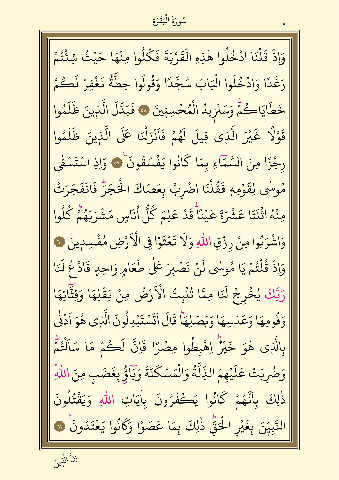 سُورَةُ الْبَقَرَةِ
وَإِذْ قُلْنَا ادْخُلُوا هٰذِهِ الْقَرْيَةَ فَكُلُوا مِنْهَا حَيْثُ شِئْتُمْ
رَغَدًا وَادْخُلُوا الْبَابَ سُجَّدًا وَقُولُوا حِطَّةٌ نَغْفِرْ لَكُمْ
خَطَايَاكُمْ وَسَنَزِيدُ الْمُحْسِنِينَ ﴿٥٨﴾ فَبَدَّلَ الَّذِينَ ظَلَمُوا
قَوْلًا غَيْرَ الَّذِي قِيلَ لَهُمْ فَأَنْزَلْنَا عَلَى الَّذِينَ ظَلَمُوا
رِجْزًا مِنَ السَّمَاءِ بِمَا كَانُوا يَفْسُقُونَ ﴿٥٩﴾ وَإِذِ اسْتَسْقٰى
مُوسٰى لِقَوْمِهِ فَقُلْنَا اضْرِبْ بِعَصَاكَ الْحَجَرَ فَانْفَجَرَتْ
مِنْهُ اثْنَتَا عَشْرَةَ عَيْنًا قَدْ عَلِمَ كُلُّ أُنَاسٍ مَشْرَبَهُمْ كُلُوا
وَاشْرَبُوا مِنْ رِزْقِ اللهِ وَلَا تَعْثَوْا فِي الْأَرْضِ مُفْسِدِينَ ﴿٦٠﴾
وَإِذْ قُلْتُمْ يَا مُوسٰى لَنْ نَصْبِرَ عَلٰى طَعَامٍ وَاحِدٍ فَادْعُ لَنَا
رَبَّكَ يُخْرِجْ لَنَا مِمَّا تُنْبِتُ الْأَرْضُ مِنْ بَقْلِهَا وَقِثَّائِهَا
وَفُومِهَا وَعَدَسِهَا وَبَصَلِهَا قَالَ أَتَسْتَبْدِلُونَ الَّذِي هُوَ أَدْنٰى
بِالَّذِي هُوَ خَيْرٌ اِهْبِطُوا مِصْرًا فَإِنَّ لَكُمْ مَا سَأَلْتُمْ
وَضُرِبَتْ عَلَيْهِمُ الذِّلَّةُ وَالْمَسْكَنَةُ وَبَاؤُ بِغَضَبٍ مِنَ اللهِ
ذٰلِكَ بِأَنَّهُمْ كَانُوا يَكْفُرُونَ بِآيَاتِ اللهِ وَيَقْتُلُونَ
النَّبِيِّنَ بِغَيْرِ الْحَقِّ ذٰلِكَ بِمَا عَصَوْا وَكَانُوا يَعْتَدُونَ ﴿٦١﴾